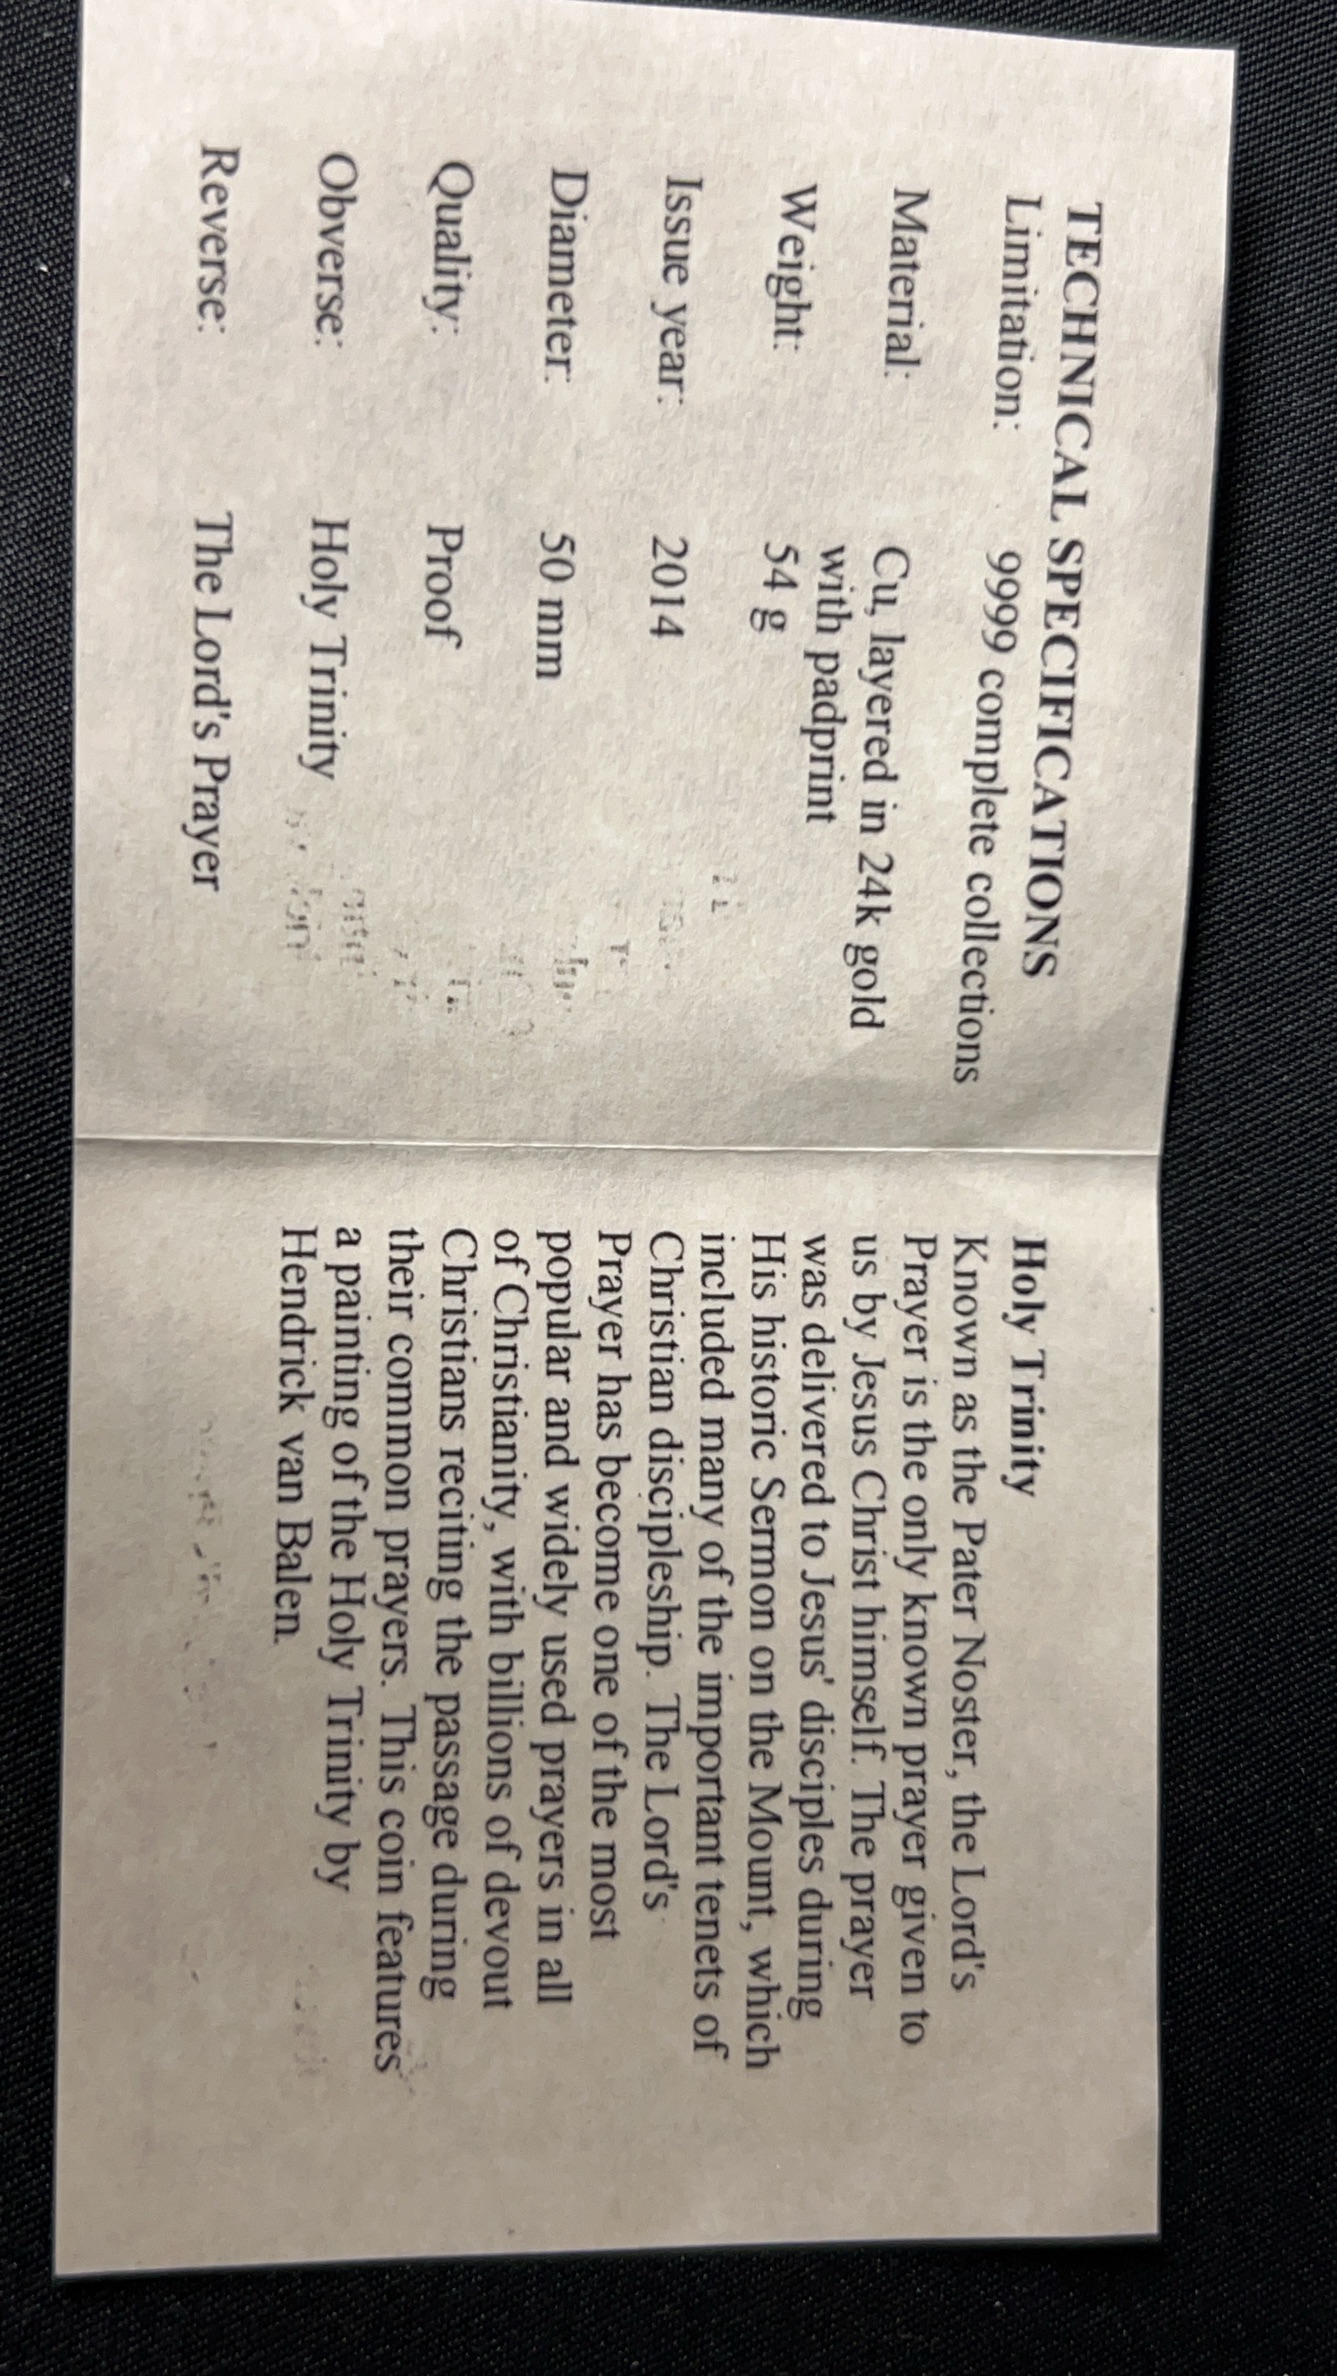 TECHNICAL SPECIFICATIONS
Limitation: 9999 complete collections
Material: Cu, layered in 24k gold
with padprint
Weight: 54 g
Issue year: 2014
Diameter: 50 mm
Quality: Proof
Obverse: Holy Trinity
Reverse: The Lord's Prayer
Holy Trinity
Known as the Pater Noster, the Lord's
Prayer is the only known prayer given to
us by Jesus Christ himself. The prayer
was delivered to Jesus' disciples during
His historic Sermon on the Mount, which
included many of the important tenets of
Christian discipleship. The Lord's
Prayer has become one of the most
popular and widely used prayers in all
of Christianity, with billions of devout
Christians reciting the passage during
their common prayers. This coin features
a painting of the Holy Trinity by
Hendrick van Balen.